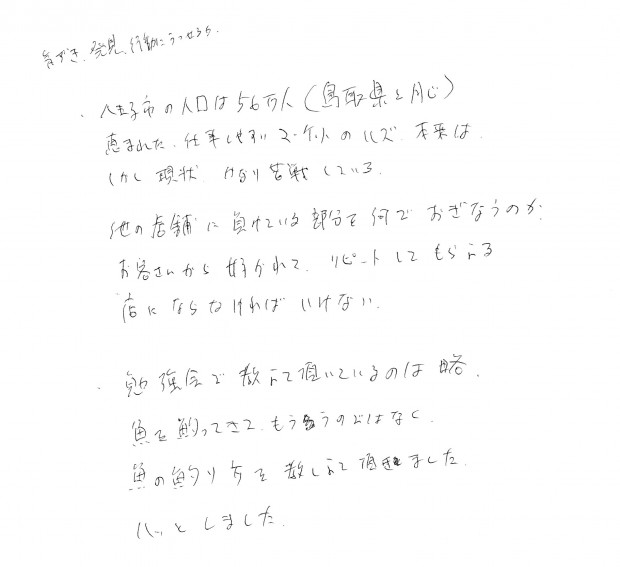 気づき、発見、行動にうつせるか.
・八王子市の人口は56万人(鳥取県と同じ)
恵まれた、仕事しやすいマーケットのハズ、本来は.
しかし現状、かなり苦戦している.
他の店舗に負けている部分を何でおぎなうのか.
お客さんから好かれて、リピートしてもらえる
店にならなければいけない.
・勉強会で教えて頂いているのは略.
魚を釣ってきてもらうのではなく
魚の釣り方を教えて頂きました.
ハッとしました.